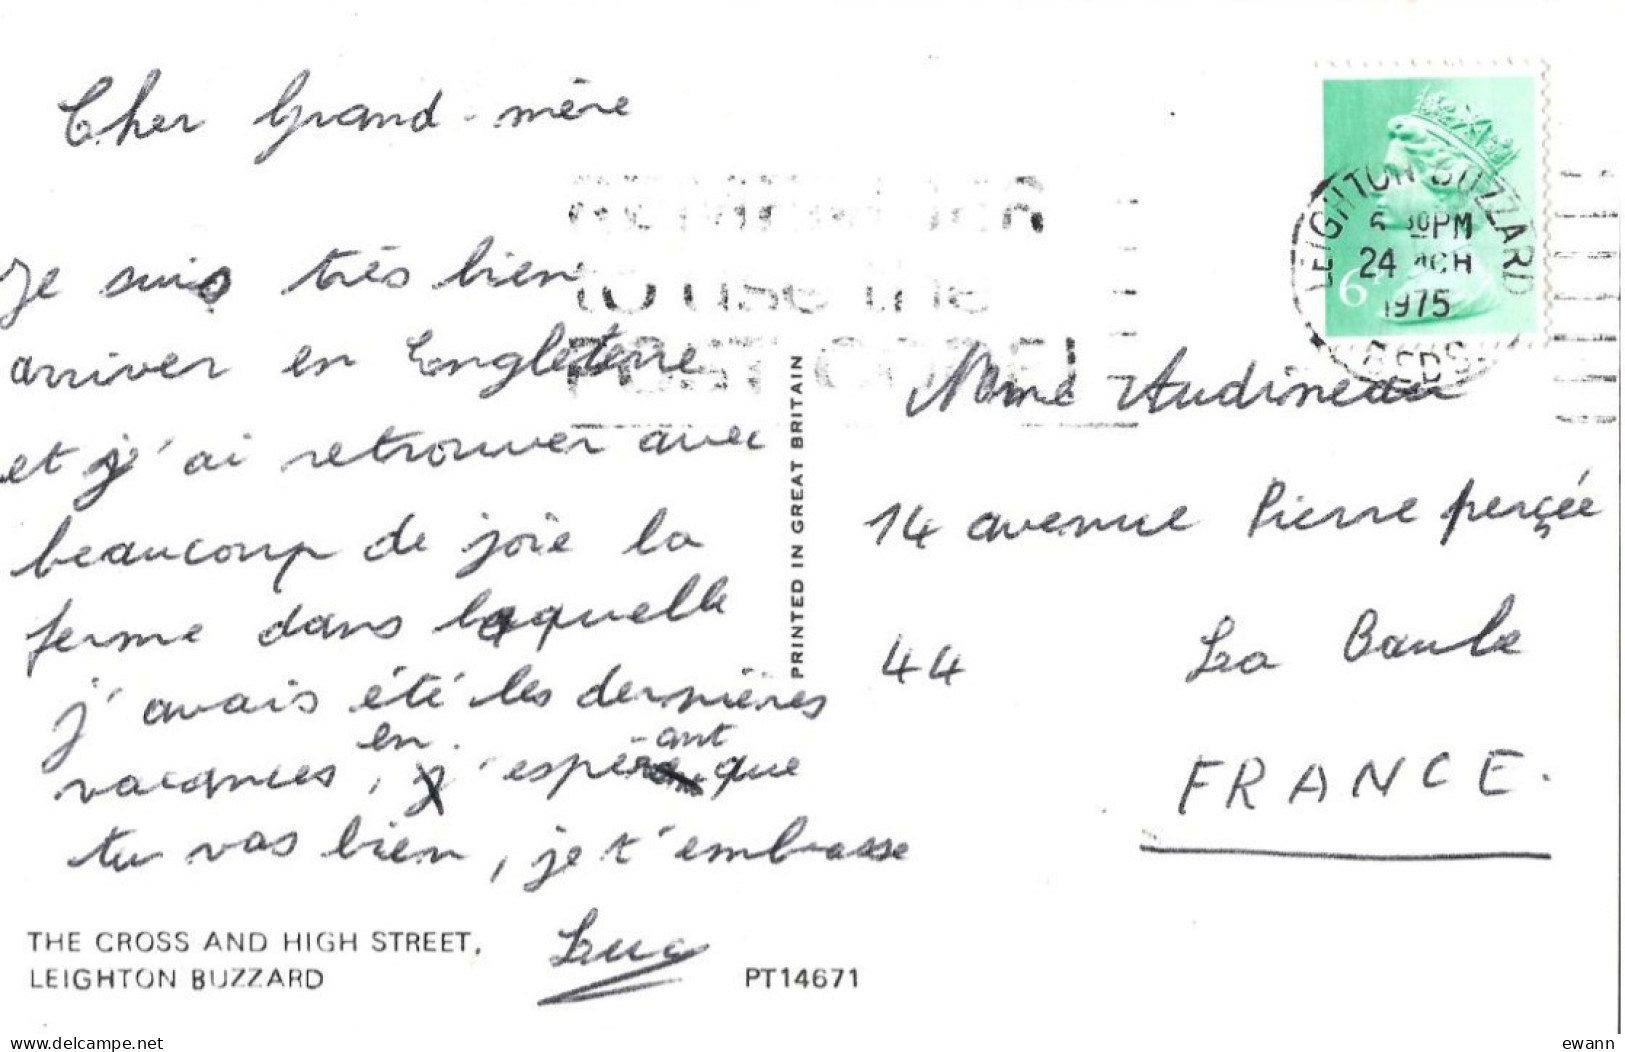 Cher Grand-mère
Je suis très bien
arriver en Engleterre
et j'ai retrouver avec
beaucoup de joie la
ferme dans laquelle
j'avais été les dernières
en -ant
vacances, j'espér que
tu vas bien, je t'embrasse
Luc
THE CROSS AND HIGH STREET,
LEIGHTON BUZZARD
PT14671
PRINTED IN GREAT BRITAIN
to use the
POST CODE!
LEIGHTON BUZZARD
30PM
24 MCH
1975
BEDS
6P
Mme Audineau
14 avenue Pierre perçée
44 La Baule
FRANCE.
delcampe.net
ewann